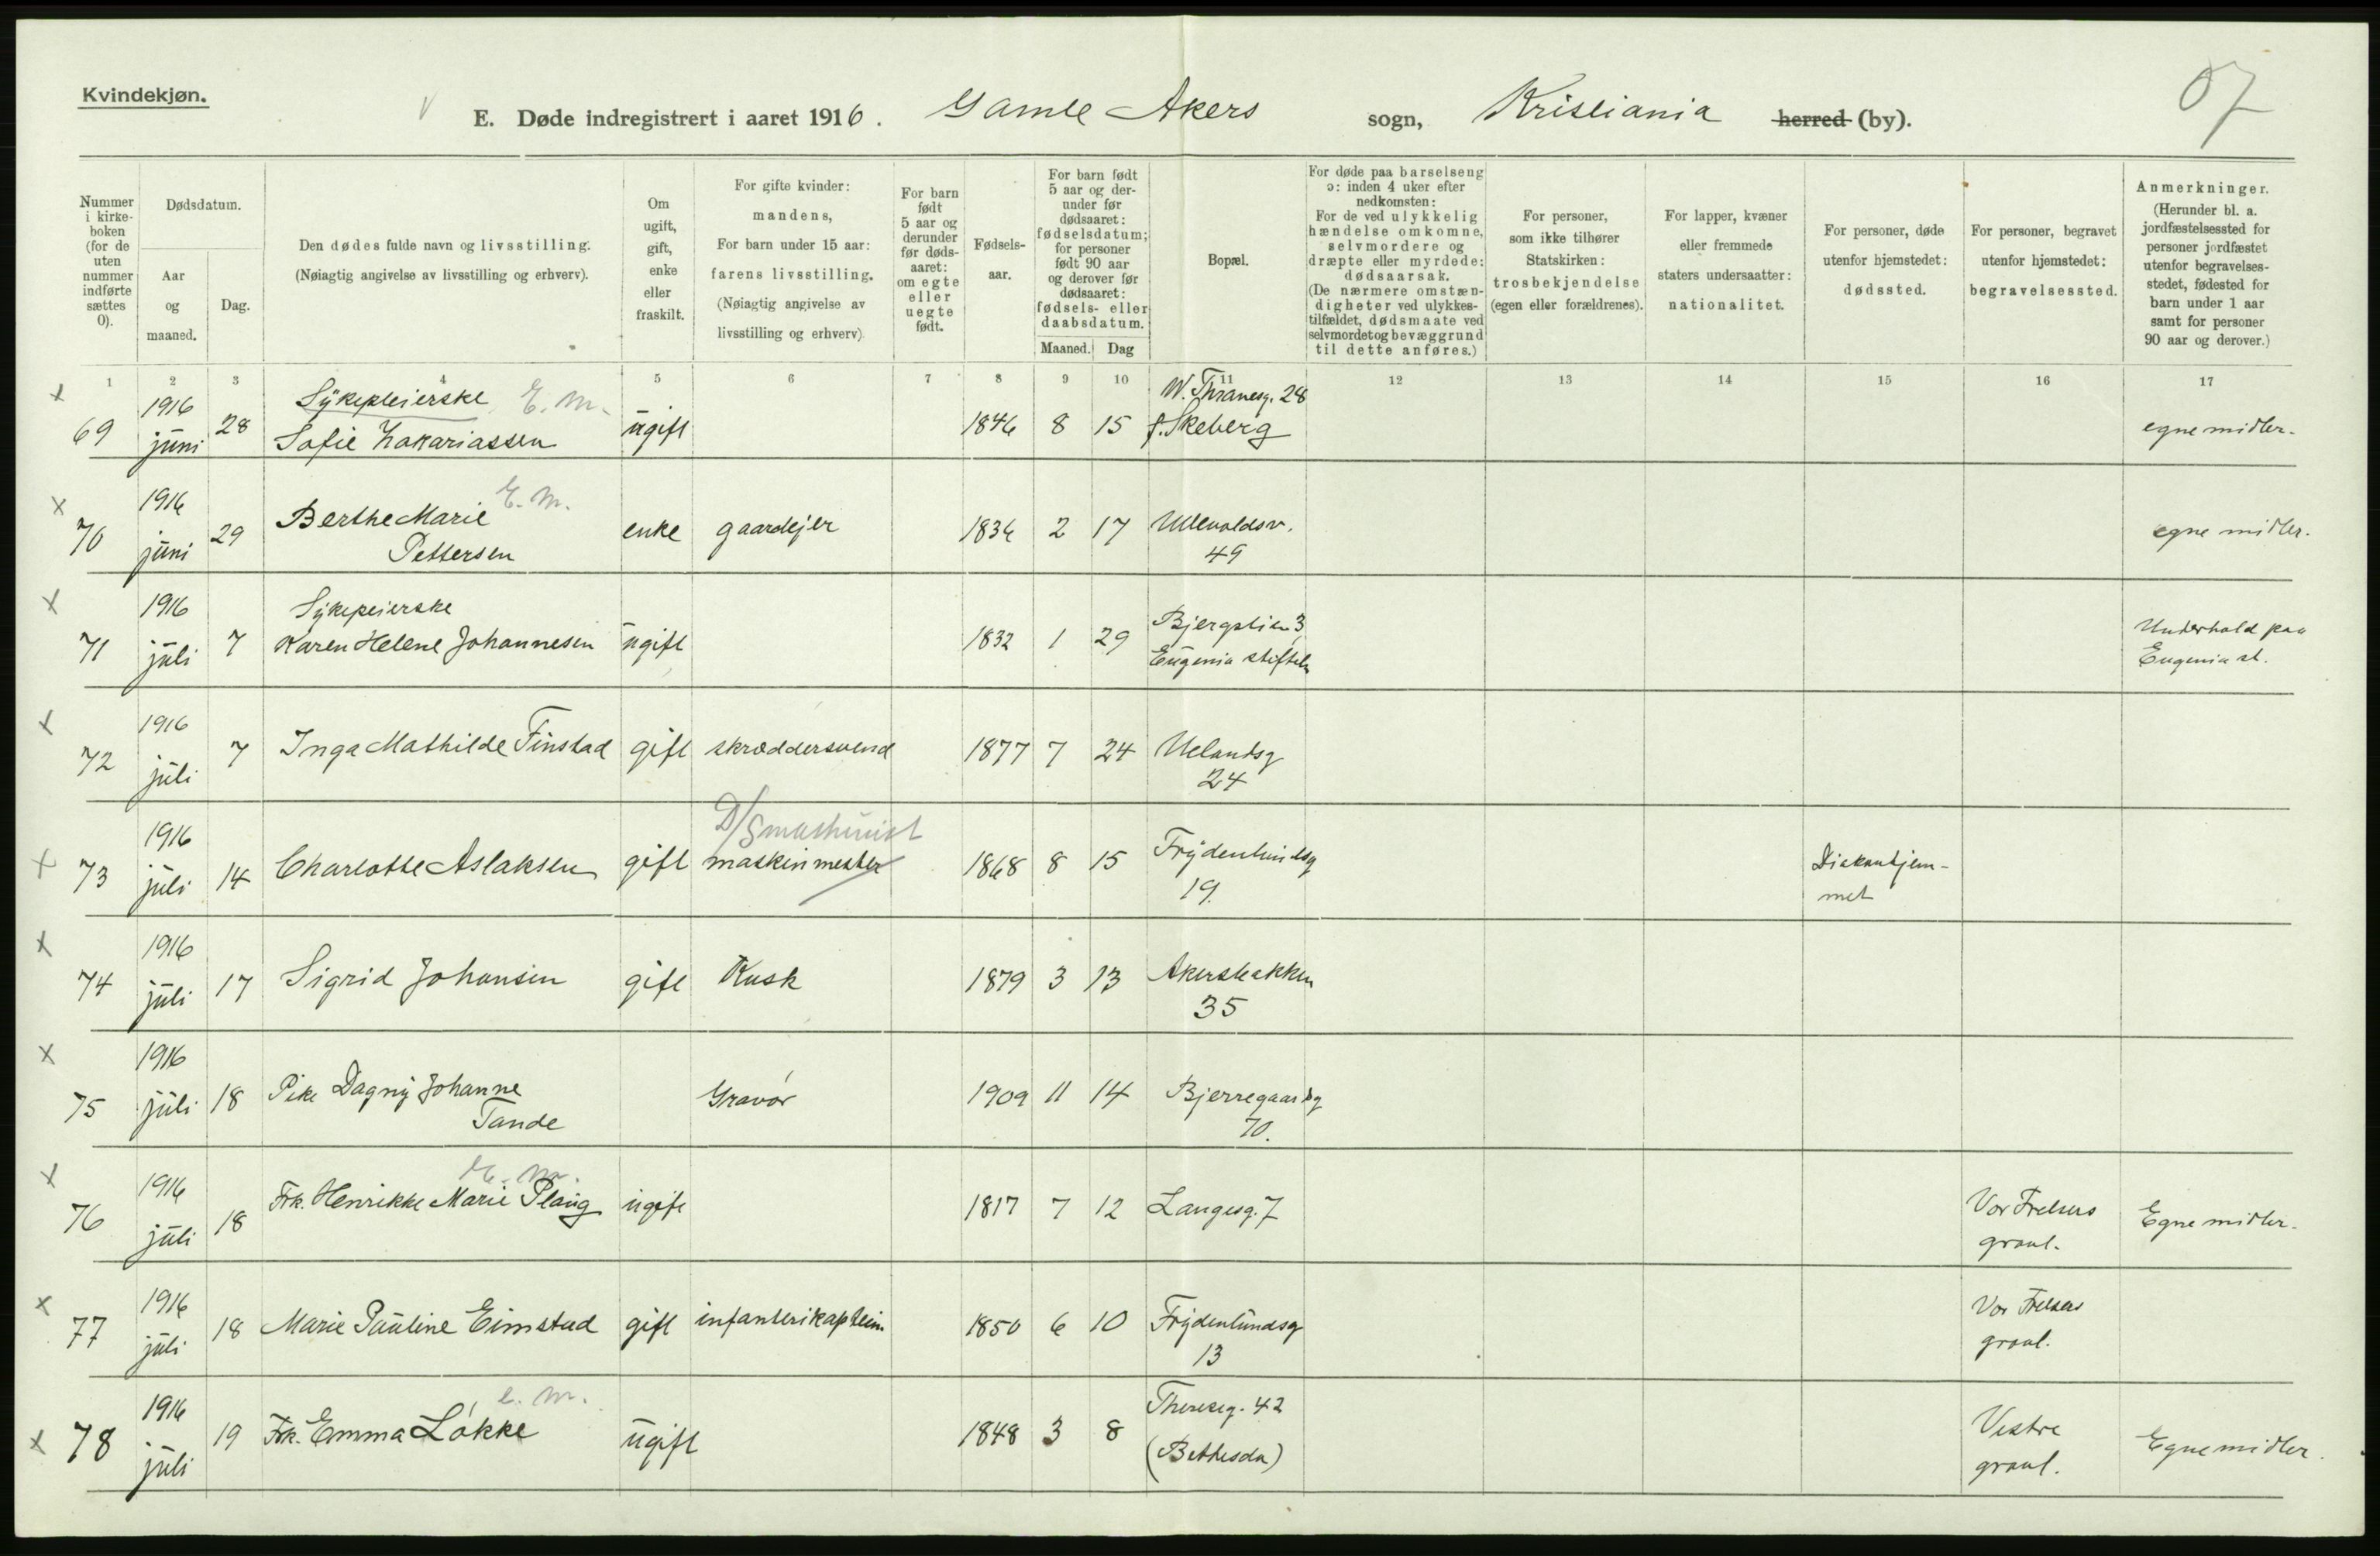 Kvindekjøn.
E. Døde indregistrert i aaret 1916. Gamle Akers sogn, Kristiania herred (by).
Nummer i kirkeboken (for de uten nummer indførte sættes 0).
Dødsdatum.
Aar og maaned.
Dag.
Den dødes fulde navn og livsstilling.
(Nøiagtig angivelse av livsstilling og erhverv).
Om ugift, gift, enke eller fraskilt.
For gifte kvinder: mandens,
For barn under 15 aar: farens livsstilling.
(Nøiagtig angivelse av livsstilling og erhverv)
For barn født 5 aar og derunder før dødsaaret: om egte eller uegte født.
Fødselsaar.
For barn født 5 aar og derunder før dødsaaret: fødselsdatum; for personer født 90 aar og derover før dødsaaret: fødsels- eller daabsdatum.
Maaned. Dag
Bopæl.
For døde paa barselseng ɔ: inden 4 uker efter nedkomsten:
For de ved ulykkelig hændelse omkomne, selvmordere og dræpte eller myrdede: dødsaarsak.
(De nærmere omstændigheter ved ulykkestilfældet, dødsmaate ved selvmordet og bevæggrund til dette anføres.)
For personer, som ikke tilhører Statskirken: trosbekjendelse (egen eller forældrenes).
For lapper, kvæner eller fremmede staters undersaatter: nationalitet.
For personer, døde utenfor hjemstedet: dødssted.
For personer, begravet utenfor hjemstedet: begravelsessted.
Anmerkninger.
(Herunder bl. a. jordfæstelsessted for personer jordfæstet utenfor begravelsesstedet, fødested for barn under 1 aar samt for personer 90 aar og derover.)
1 2 3 4 5 6 7 8 9 10 11 12 13 14 15 16 17
x 69 1916 juni 28 Sykepleierske E. m. Sofie Zakariassen ugift 1846 8 15 W. Thranesg. 28 f. Skeberg egne midler.
x 70 1916 juni 29 Berthe Marie E. m. Pettersen enke gaardejer 1836 2 17 Ullevoldsv. 49 egne midler.
x 71 1916 juli 7 Sykepeierske Karen Helene Johannesen ugift 1832 1 29 Bjergstien 3 Eugenia stiftels Underhold paa Eugenia st.
x 72 1916 juli 7 Inga Mathilde Finstad gift skræddersvend 1877 7 24 Uelandsg 24
x 73 1916 juli 14 Charlotte Aslaksen gift D/S maskinist maskinmester 1868 8 15 Frydenlundsg 19. Diakonhjemmet
x 74 1916 juli 17 Sigrid Johansen gift Kusk 1879 3 13 Akersbakken 35
x 75 1916 juli 18 Pike Dagny Johanne Tande Gravør 1909 11 14 Bjerregaardsg 70.
x 76 1916 juli 18 E. m. Frk. Henrikke Marie Plaug ugift 1817 7 12 Langesg. 7 Vor Frelsers gravl. Egne midler.
x 77 1916 juli 18 Marie Pauline Eimstad gift infanterikaptein 1850 6 10 Frydenlundsg 13 Vor Frelsers gravl.
x 78 1916 juli 19 E. m. Frk. Emma Løkke ugift 1848 3 8 Thereseg. 42 (Bethesda) Vestre gravl. Egne midler.